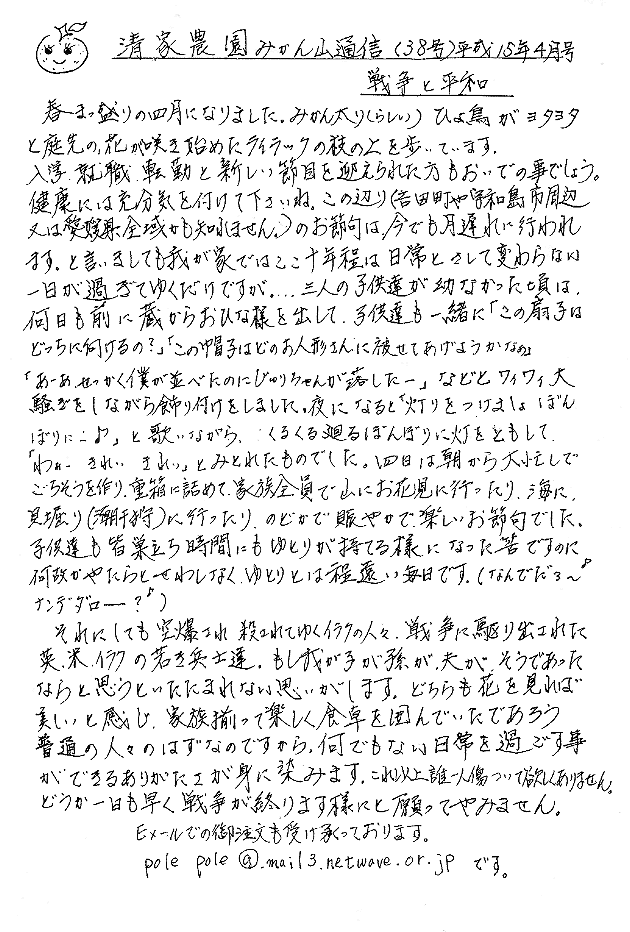 清家農園みかん山通信(38号)平成15年4月号
戦争と平和
春まっ盛りの四月になりました。みかん太り(らしい)ひよ鳥がヨタヨタ
と庭先の花が咲き始めたライラックの枝の上を歩いています。
入学、就職、転勤と新しい節目を迎えられた方もおいでの事でしょう。
健康には充分気を付けて下さいね。この辺り(吉田町や宇和島市周辺
又は愛媛県全域かも知れません。)のお節句は、今でも月遅れに行われ
ます。と言いましても我が家ではここ十年程は日常とさして変わらない
一日が過ぎてゆくだけですが....三人の子供達が幼なかった頃は、
何日も前に蔵からおひな様を出して、子供達も一緒に「この扇子は
どっちに向けるの?」「この帽子はどのお人形さんに被せてあげようかなぁ」
「あーあ、せっかく僕が並べたのにじゅりちゃんが落したー」などとワイワイ大
騒ぎをしながら飾り付けをしました。夜になると「灯りをつけましょぼん
ぼりに♪」と歌いながら、くるくる廻るぼんぼりに灯をともして
「わぁーきれいきれい」とみとれたものでした。四日は朝から大忙しで
ごちそうを作り、重箱に詰めて、家族全員で山にお花見に行ったり、海に
貝堀り(潮干狩)に行ったり、のどかで賑やかで楽しいお節句でした。
子供達も皆巣立ち時間にもゆとりが持てる様になった筈ですのに
何故かやたらとせわしなく、ゆとりとは程遠い毎日です。(なんでだろ〜♪
ナンデダロー?♪)
それにしても空爆され殺されてゆくイラクの人々、戦争に駆り出された
英、米、イラクの若き兵士達。もし我が子が孫が、夫が、そうであった
ならと思うといたたまれない思いがします。どちらも花を見れば
美しいと感じ、家族揃って楽しく食卓を囲んでいたであろう
普通の人々のはずなのですから。何でもない日常を過ごす事
ができるありがたさが身に染みます。これ以上誰一人傷ついて欲しくありません。
どうか一日も早く戦争が終ります様にと願ってやみません。
Eメールでの御注文も受け承っております。
pole pole@mail3.netwave.or.jp です。